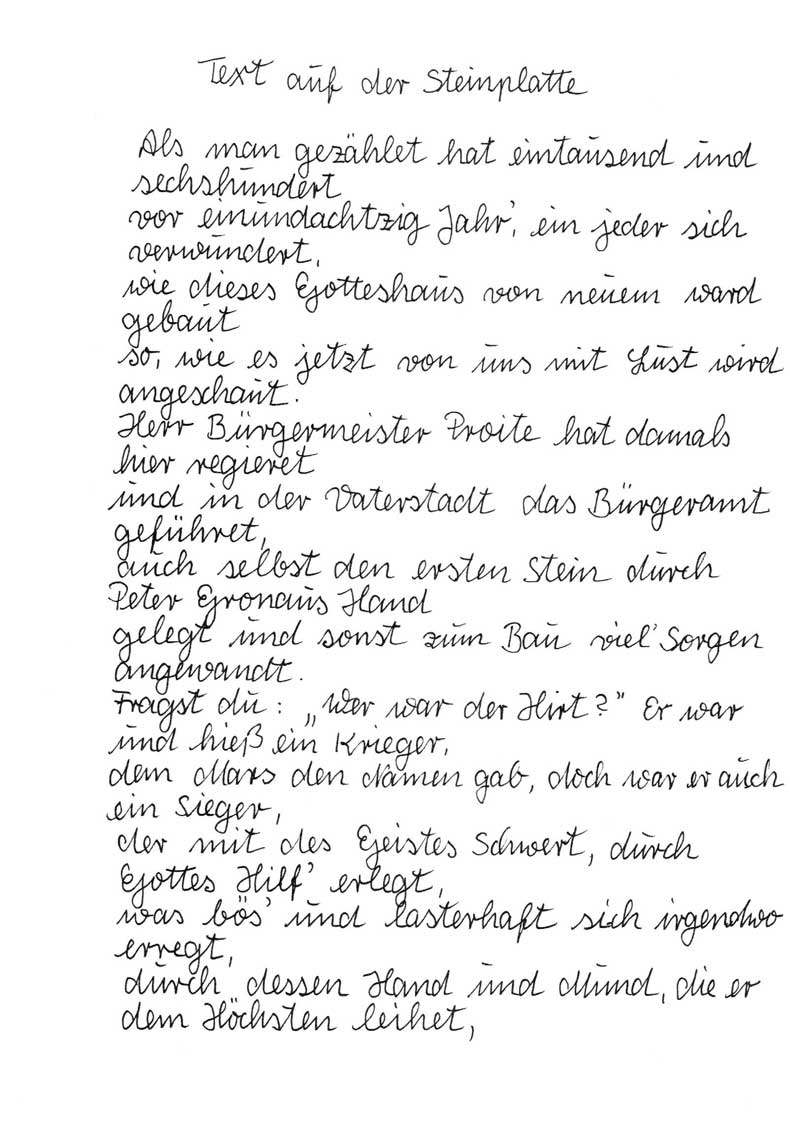 Text auf der Steinplatte
Als man gezählet hat eintausend und
sechshundert
vor einundachtzig Jahr', ein jeder sich
verwundert,
wie dieses Gotteshaus von neuem ward
gebaut
so, wie es jetzt von uns mit Lust wird
angeschaut.
Herr Bürgermeister Proite hat damals
hier regieret
und in der Vaterstadt das Bürgeramt
geführet,
auch selbst den ersten Stein durch
Peter Gronaus Hand
gelegt und sonst zum Bau viel' Sorgen
angewandt.
Fragst du: „Wer war der Hirt?" Er war
und hieß ein Krieger,
dem Mars den Namen gab, doch war er auch
ein Sieger,
der mit des Geistes Schwert, durch
Gottes Hilf' erlegt,
was bös' und lasterhaft sich irgendwo
erregt,
durch dessen Hand und Mund, die er
dem Höchsten leihet,